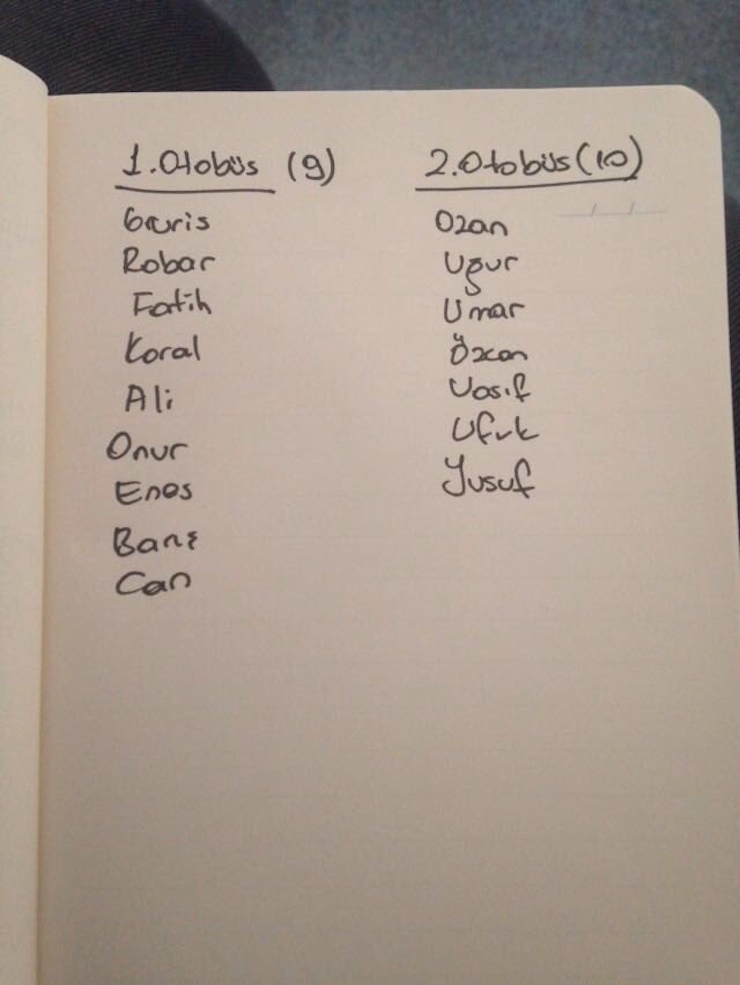 1.Otobüs (9)
Robar
Fatih
Koral
Ali
Onur
Enes
Barış
Can
2.Otobüs (10)
Ozan
Uğur
Umar
Özcan
Vasıf
Ufuk
Yusuf